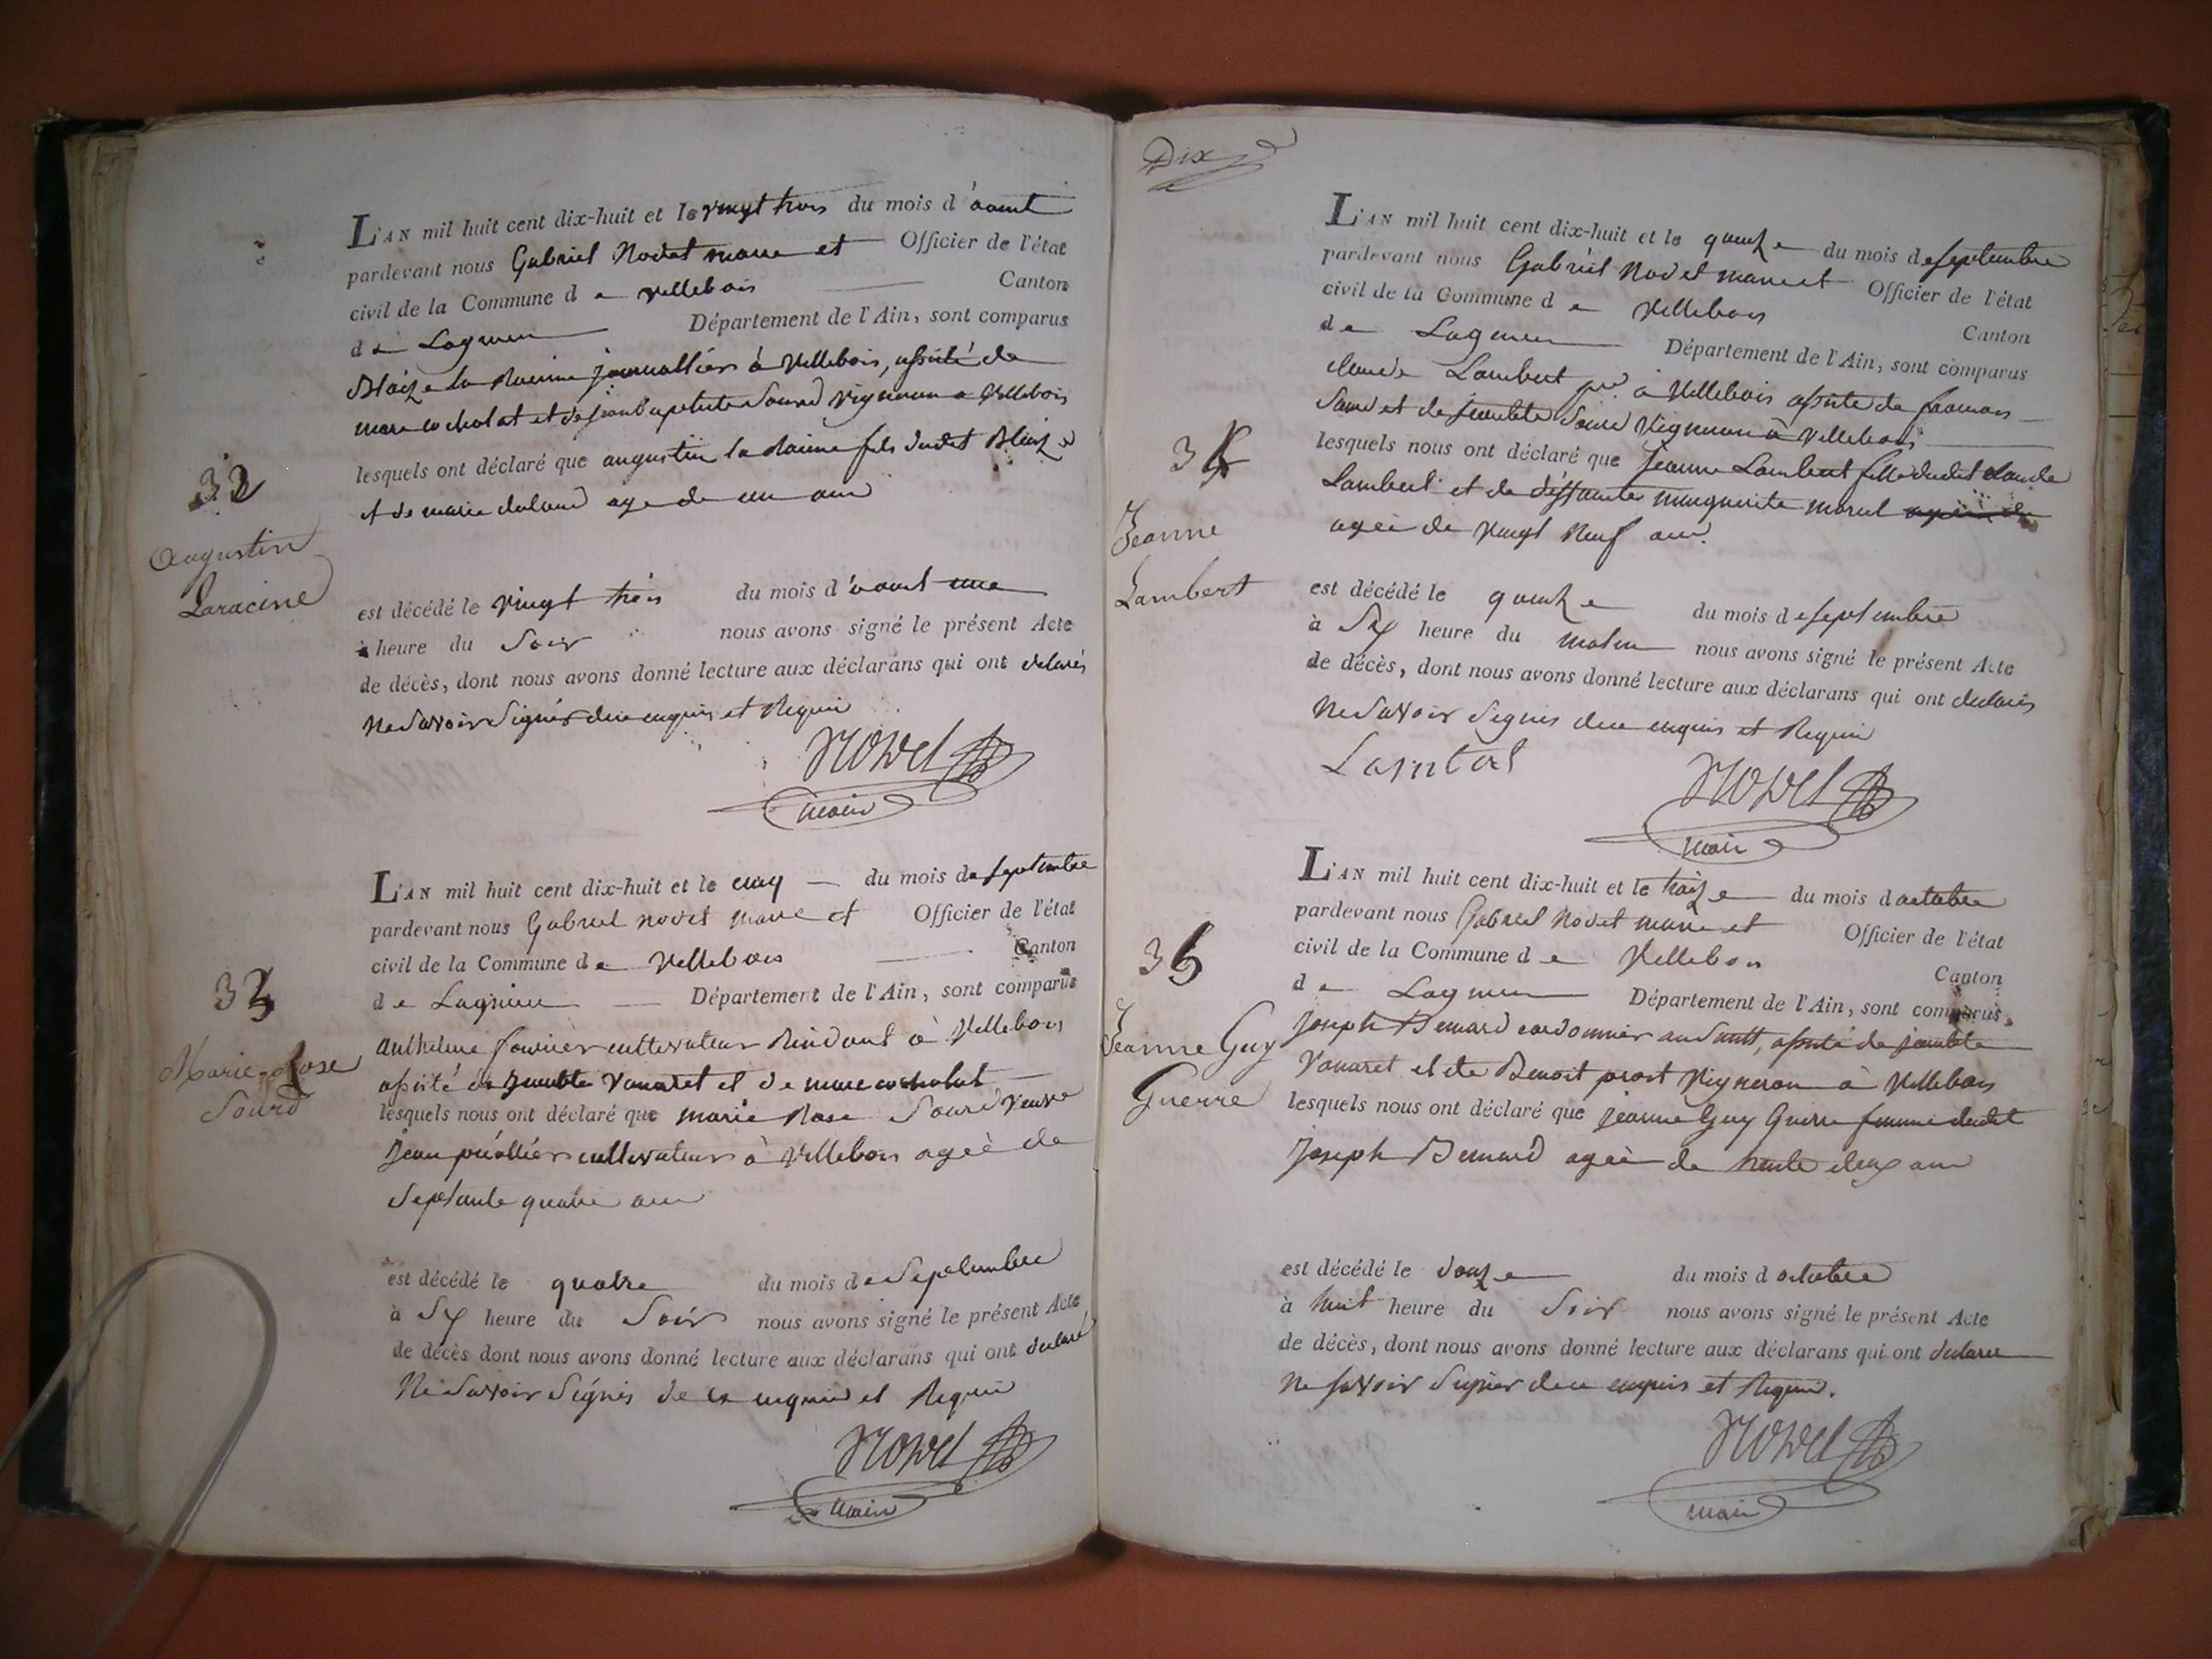 L'AN mil huit cent dix-huit et le vingt trois du mois d'aoust
pardevant nous Gabriel Nodet maire et Officier de l'état
civil de la Commune de Villebois Canton
de Lagnieu Département de l'Ain, sont comparus
Blaize la Racine journallier à Villebois, assisté de
marc cochalat et de jean baptiste Sourd vigneron a Villebois
lesquels ont déclaré que augustin la Racine fils dudit Blaize
et de marie age de un an
32
Augustin
Laracine
est décédé le vingt trois du mois d'aoust une
à heure du Soir nous avons signé le présent Acte
de décès, dont nous avons donné lecture aux déclarans qui ont déclarés
Ne Savoir Signés de ce enquis et Requis
Nodet
maire
L'AN mil huit cent dix-huit et le cinq du mois de septembre
pardevant nous Gabriel nodet maire et Officier de l'état
civil de la Commune de Villebois Canton
de Lagnieu Département de l'Ain, sont comparus
Anthelme fournier cultivateur Résidant à Villebois
assisté de Vanaret et de marc cochalat
lesquels nous ont déclaré que marie Rose Sourd veuve
Jean cultivateur à Villebois agée de
Septante quatre ans
33
Marie-Rose
Sourd
est décédé le quatre du mois de Septembre
à Six heure du Soir nous avons signé le présent Acte
de décès dont nous avons donné lecture aux déclarans qui ont déclaré
Ne Savoir Signés de ce enquis et Requis
Nodet
maire
Dix
L'AN mil huit cent dix-huit et le quinze du mois de septembre
pardevant nous Gabriel Nodet maire et Officier de l'état
civil de la Commune de Villebois Canton
de Lagnieu Département de l'Ain, sont comparus
claude Lambert à Villebois assisté de francois
Sourd et de Sourd Vigneron à Villebois
lesquels nous ont déclaré que Jeanne Lambert fille dudit claude
Lambert et de deffunte marguerite morel
agée de vingt Neuf ans
34
Jeanne
Lambert
est décédé le quinze du mois de septembre
à Six heure du matin nous avons signé le présent Acte
de décès, dont nous avons donné lecture aux déclarans qui ont declarés
Ne Savoir Signés de ce enquis et Requis
Nodet
maire
L'AN mil huit cent dix-huit et le traize du mois d octobre
pardevant nous Gabriel Nodet maire et Officier de l'état
civil de la Commune de Villebois Canton
de Lagnieu Département de l'Ain, sont comparus
Joseph Bernard cordonnier au Sault, assisté de
Vanaret et de Benoit prost Vigneron à Villebois
lesquels nous ont déclaré que jeanne Guy Guerre femme dudit
Joseph Bernard agée de trente deux ans
35
Jeanne Guy
Guerre
est décédé le douze du mois d octobre
à huit heure du Soir nous avons signé le présent Acte
de décès, dont nous avons donné lecture aux déclarans qui ont déclaré
Ne savoir Signer de ce enquis et Requis.
Nodet
maire